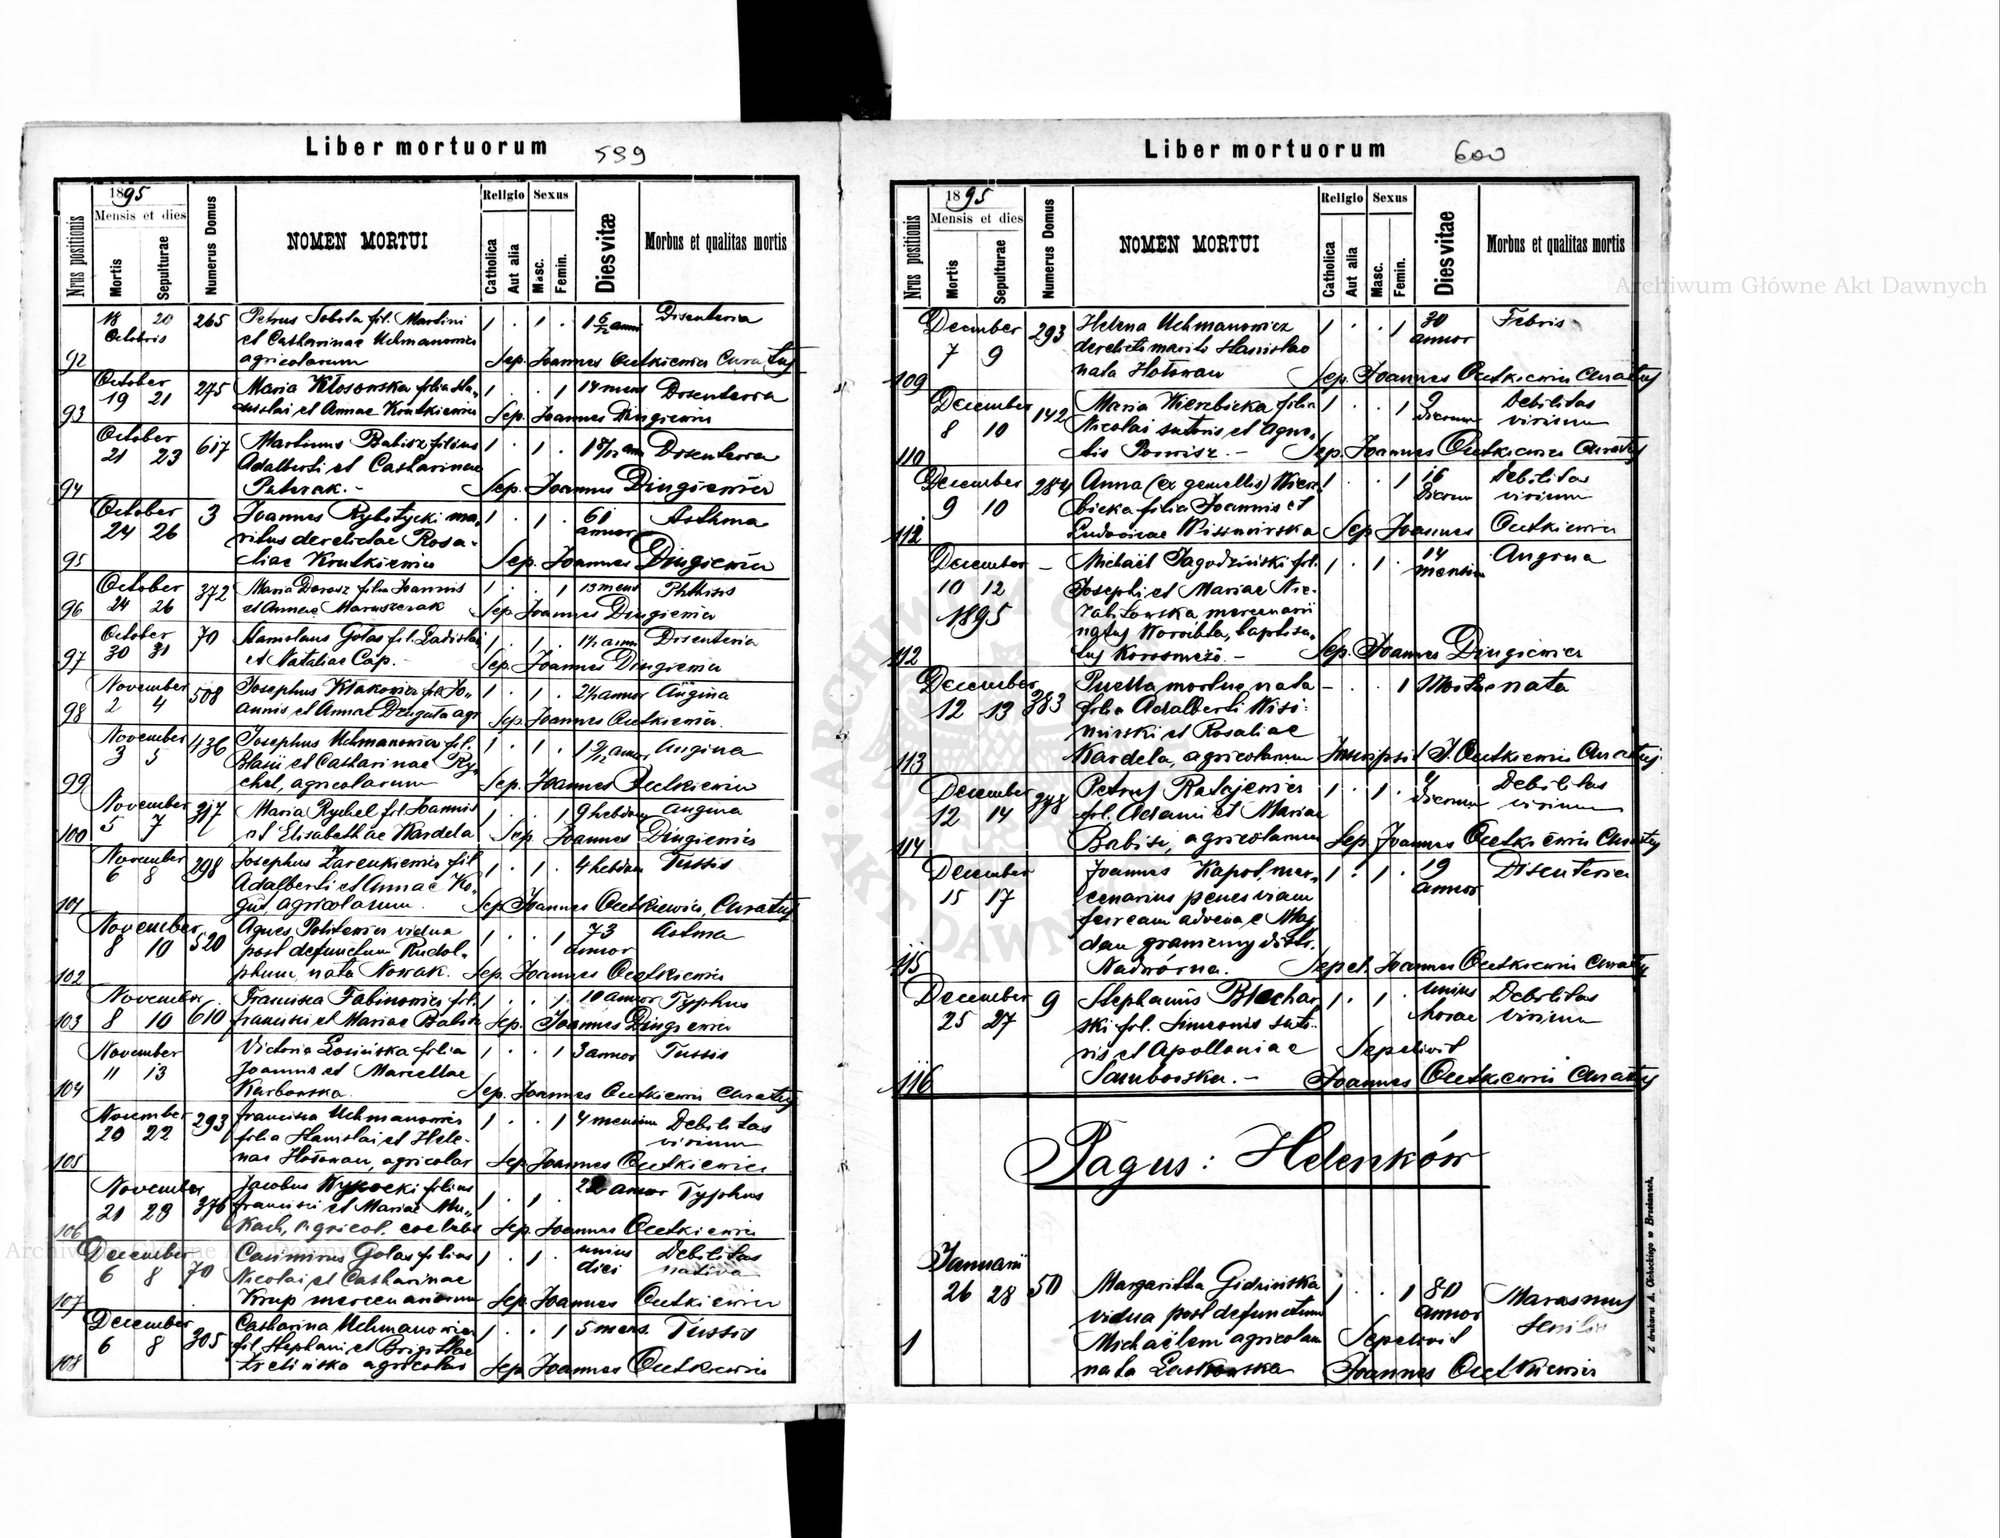 Liber mortuorum 599
1895
Mensis et dies
Nrus positionis
Mortis
Sepulturae
Numerus Domus
NOMEN MORTUI
Religio
Catholica
Aut alia
Sexus
Masc.
Femin.
Dies vitæ
Morbus et qualitas mortis
18 20 265 Petrus Sobota fil. Martini 1 . 1 . 1 6/12 anni Disenteria
Octobris et Catharinae Uchmanowicz
92 agricolarum Sep. Joannes Outkiewicz Curatus
October 275 Maria Kłosowska filia Sta- 1 . . 1 14 mens Disenteria
19 21
93 nislai et Annae Krutkiewicz Sep. Joannes Dungiewicz
October 617 Martinus Babisz filius 1 . 1 . Disenteria
21 23 Adalberti et Catharinae
94 Puterak.- Sep. Joannes Dungiewicz
October 3 Joannes Rybotycki ma- 1 . 1 . 61 Asthma
24 26 ritus derelictae Rosa- annor
95 liae Krutkiewicz Sep. Joannes Dungiewicz
October 372 Maria Darasz filia Joannis 1 . . 1 13 mens Phthisis
24 26
96 et Annae Maruszczak Sep. Joannes Dungiewicz
October 70 Stanislaus Gołas fil. Ladislai 1 . 1 . 1½ anni Disenteria
30 31
97 et Nataliae Cap.- Sep. Joannes Dungiewicz
November 508 Josephus Kłakowicz fil. Jo- 1 . 1 . 2½ annor Angina
2 4
98 annis et Annae agr Sep. Joannes Outkiewicz.
November 436 Josephus Uchmanowicz fil. 1 . 1 . 1 9/12 annor Angina
3 5 Blasii et Catharinae Ry-
99 chel, agricolarum Sep. Joannes Outkiewicz
November 317 Maria Rychel fil. Joannis 1 . . 1 9 hebdom Angina
5 7
100 et Elisabethae Kardela Sep. Joannes Dungiewicz
November 298 Josephus Zarenkiewicz fil 1 . 1 . 4 hebdom Tussis
6 8 Adalberti et Annae Ko-
101 gut, agricolarum. Sep. Joannes Outkiewicz, Curatus
November 520 Agnes Politewicz vidua 1 . . 1 73 Astma
8 10 post defunctum Rudol- annor
102 phum, nata Nowak. Sep. Joannes Outkiewicz
November 610 Francisca Fabinowicz fil. 1 . . 1 10 annor Typhus
103 8 10 Francisci et Mariae Babisz Sep. Joannes Dungiewicz
November Victoria Łosińska filia 1 . . 1 3 annor Tussis
11 13 Joannis et Marcellae
104 Karbowska. Sep. Joannes Outkiewicz Curatus
November 293 Francisca Uchmanowicz 1 . . 1 4 mensium Debilitas
20 22 filia Stanislai et Hele- virium
105 nae Hołowacz, agricolar Sep. Joannes Outkiewicz
November 376 Jacobus Wysocki filius 1 . 1 . 22 annor Typhus
21 23 Francisci et Mariae Mu-
106 kach, agricol. coelebs Sep. Joannes Outkiewicz
December 70 Casimirus Gołas filius 1 . 1 . unius Debilitas
6 8 Nicolai et Catharinae diei nativa
107 Krup mercenariorum Sep. Joannes Outkiewicz
December 305 Catharina Uchmanowicz 1 . . 1 5 mens. Tussis
6 8 fil. Stephani et Brigittae
108 agricolar Sep. Joannes Outkiewicz
Liber mortuorum 600
1895
Mensis et dies
Nrus positionis
Mortis
Sepulturae
Numerus Domus
NOMEN MORTUI
Religio
Catholica
Aut alia
Sexus
Masc.
Femin.
Dies vitae
Morbus et qualitas mortis
December 293 Helena Uchmanowicz 1 . . 1 30 Febris
7 9 derelicti mariti Stanislao annor
109 nata Hołowacz Sep. Joannes Outkiewicz Curatus
December 142 Maria Wierzbicka filia 1 . . 1 9 Debilitas
8 10 Nicolai sutoris et Agne- dierum virium
110 tis Porwisz.- Sep. Joannes Outkiewicz Curatus
December 284 Anna (ex gemellis) Wierz- 1 . . 1 16 Debilitas
9 10 bicka filia Joannis et dierum virium
112 Ludovicae Wiśniowska Sep Joannes Outkiewicz
December - Michaël Jagodziński fil. 1 . 1 . 14 Angina
10 12 Josephi et Mariae Nie- mensium
1895 zabitowska mercenarii
natus Worochta, baptisa-
112 tus Korosmező.- Sep. Joannes Dungiewicz
December 383 Puella mortue nata - . . 1 Mortue nata
12 13 filia Adalberti Wiśi-
niwski et Rosaliae
113 Kardela, agricolarum Inscripsit J. Outkiewicz Curatus
December 378 Petrus Ratajewicz 1 . 1 . 4 Debilitas
12 14 fil. Adami et Mariae dierum virium
114 Babisz, agricolarum Sep. Joannes Outkiewicz Curatus
December Joannes Kapot, mer- 1 . 1 . 19 Disenteria
15 17 cenarius penes viam annor
ferream advena e Maj
dan graniczny distr.
115 Nadwórna. Sepel. Joannes Outkiewicz Curatus
December 9 Stephanus Blechar- 1 . 1 . unius Debilitas
25 27 ski fil. Simeonis suto- horae virium
ris et Apolloniae Sepelivit
116 Samborska.- Joannes Outkiewicz Curatus
Pagus: Helenków
Januarii
26 28 50 Margaritta Gidzińska 1 . . 1 80 Marasmus
vidua post defunctum annor senilis
1 Michaëlem agricolam Sepelivit
nata Laskowska Joannes Outkiewicz
Z drukarni A. Cichockiego w Brzeżanach.
Archiwum Główne Akt Dawnych
Archiwum Główne Akt Dawnych